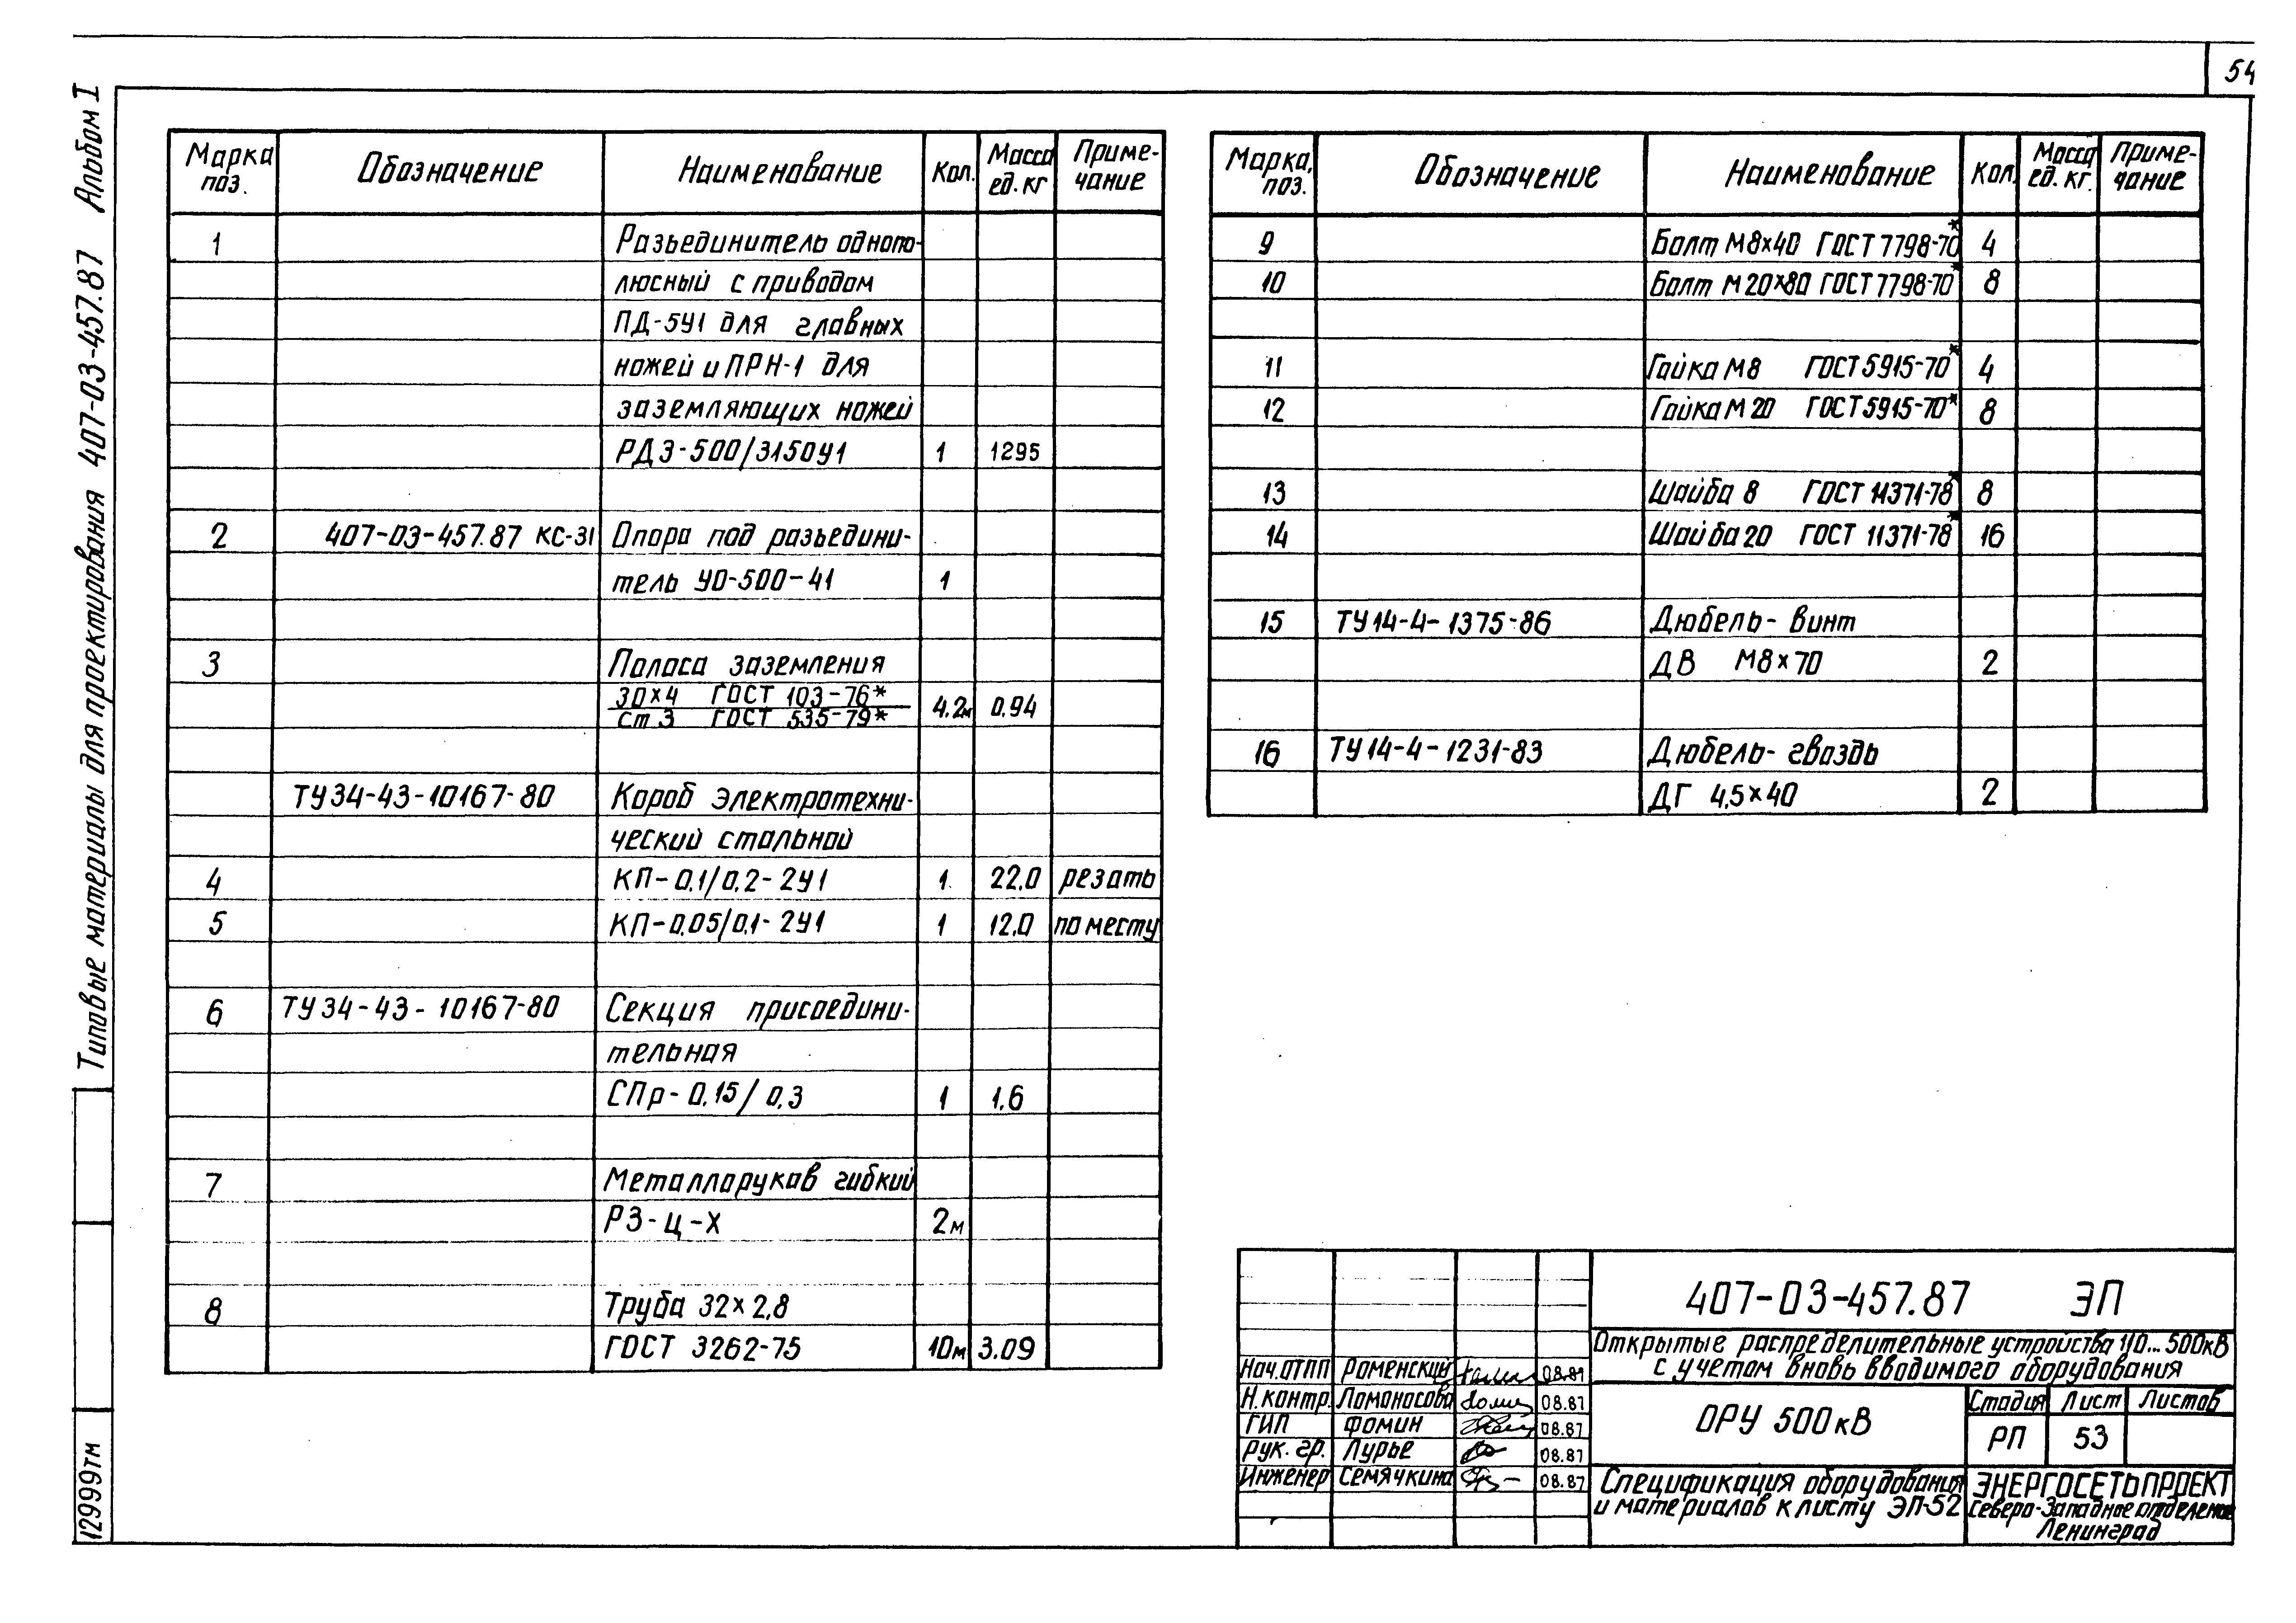 54
Типовые материалы для проектирования 407-03-457.87 Альбом I
12999тм
Марка поз. Обозначение Наименование Кол. Масса ед. кг Приме-чание
1 Разъединитель одно по-
люсный с приводом
ПД-5У1 для главных
ножей и ПРН-1 для
заземляющих ножей
РДЗ-500/3150У1 1 1295
2 407-03-457.87 КС-31 Опора под разъедини-
тель УО-500-41 1
3 Полоса заземления
30×4 ГОСТ 103-76*
Ст 3 ГОСТ 535-79* 4.2м 0.94
ТУ 34-43-10167-80 Короб электротехни-
ческий стальной
4 КП-0,1/0,2-2У1 1 22,0 резать
5 КП-0,05/0,1-2У1 1 12,0 по месту
6 ТУ 34-43-10167-80 Секция присоедини-
тельная
СПр-0,15/0,3 1 1,6
7 Металлорукав гибкий
РЗ-Ц-Х 2м
8 Труба 32×2,8
ГОСТ 3262-75 10м 3.09
Марка, поз. Обозначение Наименование Кол. Масса ед. кг. Приме-чание
9 Болт М8×40 ГОСТ 7798-70* 4
10 Болт М20×80 ГОСТ 7798-70* 8
11 Гайка М8 ГОСТ 5915-70* 4
12 Гайка М20 ГОСТ 5915-70* 8
13 Шайба 8 ГОСТ 11371-78* 8
14 Шайба 20 ГОСТ 11371-78* 16
15 ТУ 14-4-1375-86 Дюбель-винт
ДВ М8×70 2
16 ТУ 14-4-1231-83 Дюбель-гвоздь
ДГ 4,5×40 2
407-03-457.87 ЭП
Открытые распределительные устройства 110...500кВ
с учетом вновь вводимого оборудования
Нач. ОТПП Роменский 08.87
Н. контр. Ломоносова 08.87
ГИП Фомин 08.87
Рук. гр. Лурье 08.87
Инженер Семячкина 08.87
ОРУ 500 кВ
Стадия Лист Листов
РП 53
Спецификация оборудования
и материалов к листу ЭП-52
ЭНЕРГОСЕТЬПРОЕКТ
Северо-Западное отделение
Ленинград